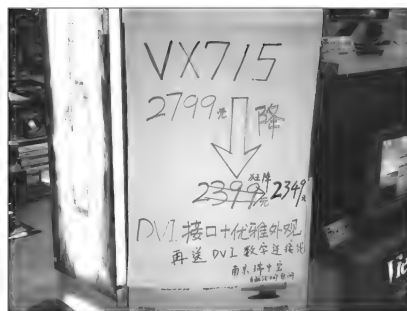 VX715
2799元 降
狂降
2399元 2349元
DVI 接口+优雅外观
再送 DVI 数字连接线
南京瑞中宝